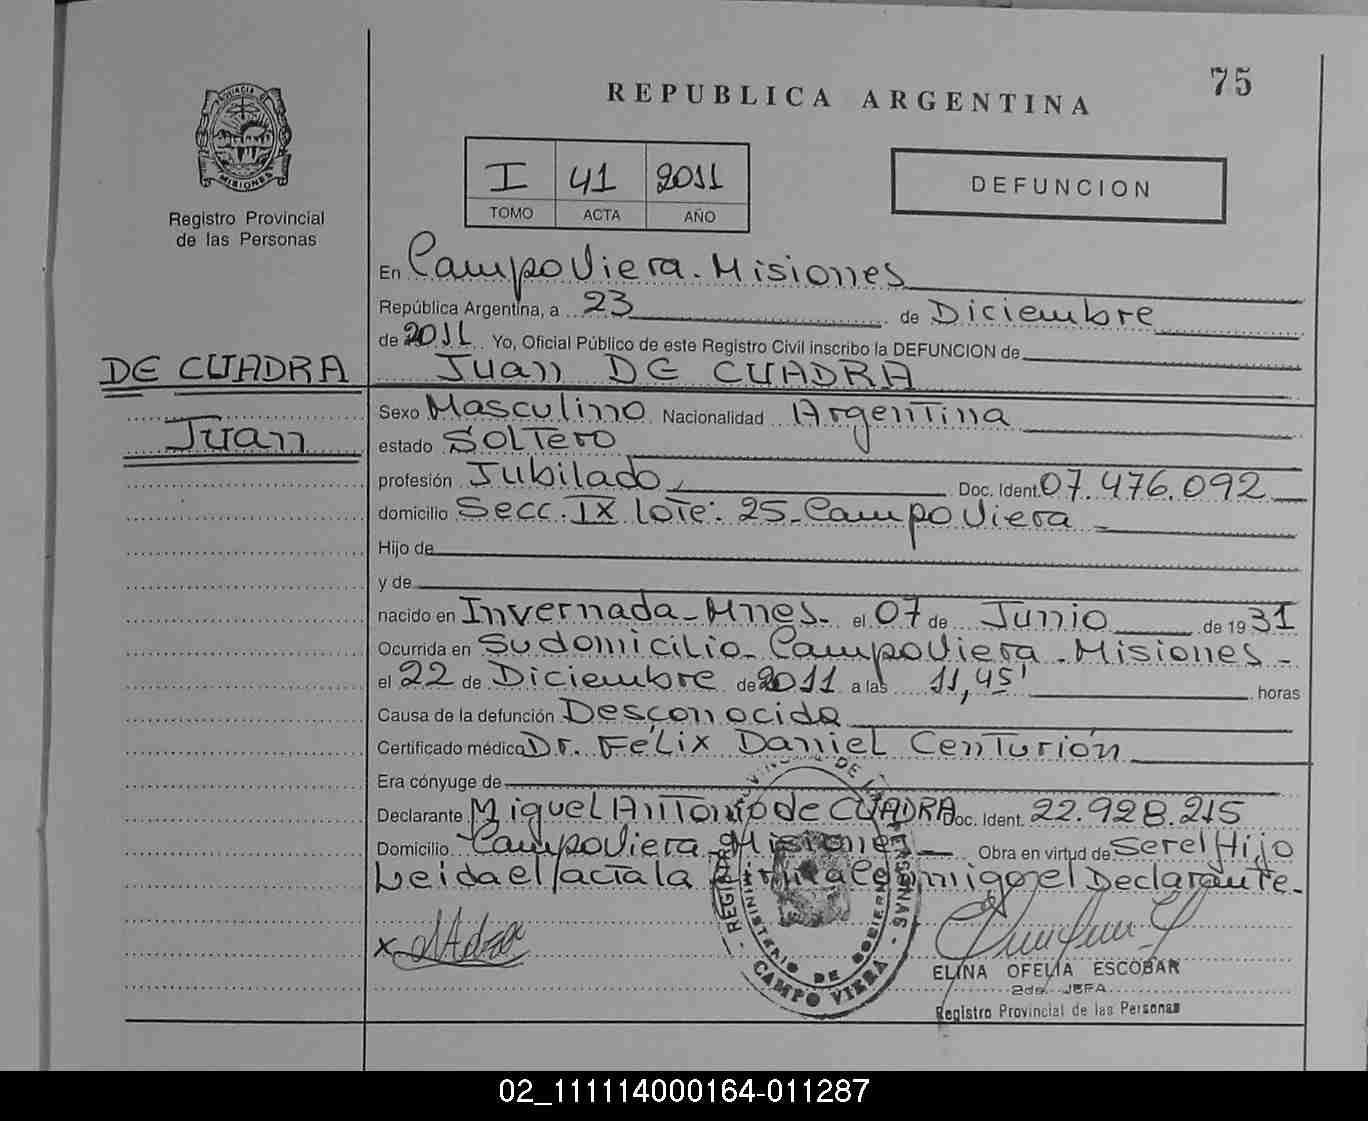 75
REPUBLICA ARGENTINA
PROVINCIA DE MISIONES
Registro Provincial
de las Personas
I 41 2011
TOMO ACTA AÑO
DEFUNCION
En Campo Viera - Misiones
República Argentina, a 23 de Diciembre
de 2011 Yo, Oficial Público de este Registro Civil inscribo la DEFUNCION de
DE CUADRA
Juan DE CUADRA
Juan
Sexo Masculino Nacionalidad Argentina
estado Soltero
profesión Jubilado, Doc. Ident. 07.476.092
domicilio Secc. IX lote: 25 - Campo Viera -
Hijo de
y de
nacido en Invernada - Mnes - el 07 de Junio de 19 31
Ocurrida en Su domicilio - Campo Viera - Misiones -
el 22 de Diciembre de 2011 a las 11,45' horas
Causa de la defunción Desconocida
Certificado médico Dr. Félix Daniel Centurión
Era cónyuge de
Declarante Miguel Antonio de CUADRA Doc. Ident. 22.928.215
Domicilio Campo Viera - Misiones - Obra en virtud de Ser el Hijo
Leida el acta la firma conmigo el Declarante -
x
REGISTRO PROVINCIAL DE LAS PERSONAS
MINISTERIO DE GOBIERNO
CAMPO VIERA
ELINA OFELIA ESCOBAR
2da. JEFA
Registro Provincial de las Personas
02_111114000164-011287